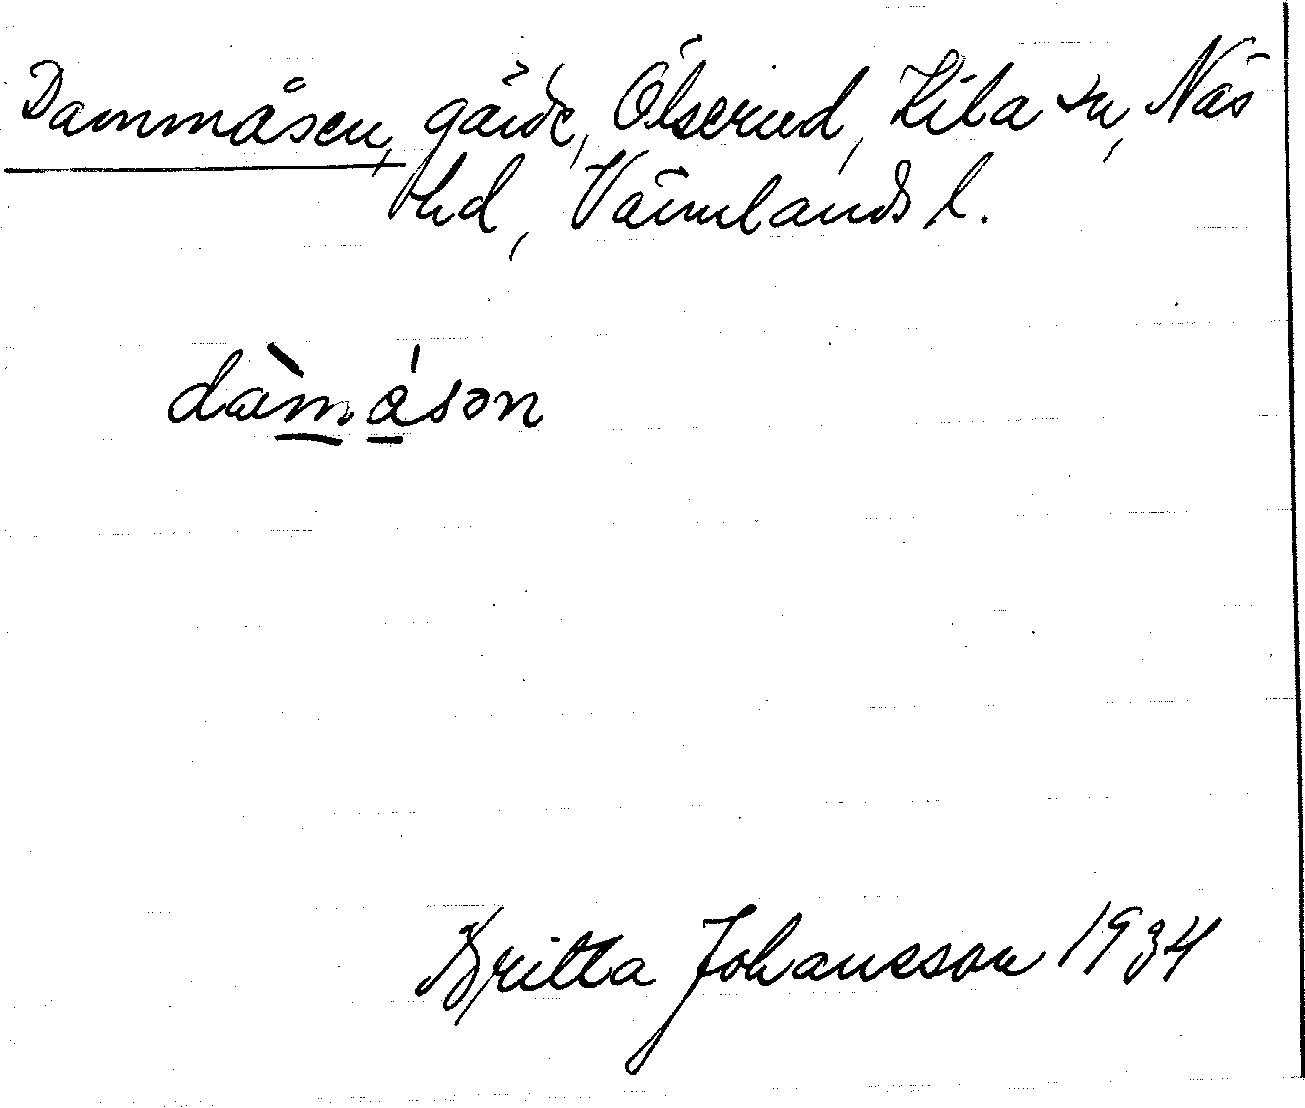 Dammåsen, gärde, Ölserud, Kila sn, Näs
hd, Värmlands l.
dàmǻsən
Britta Johansson 1934